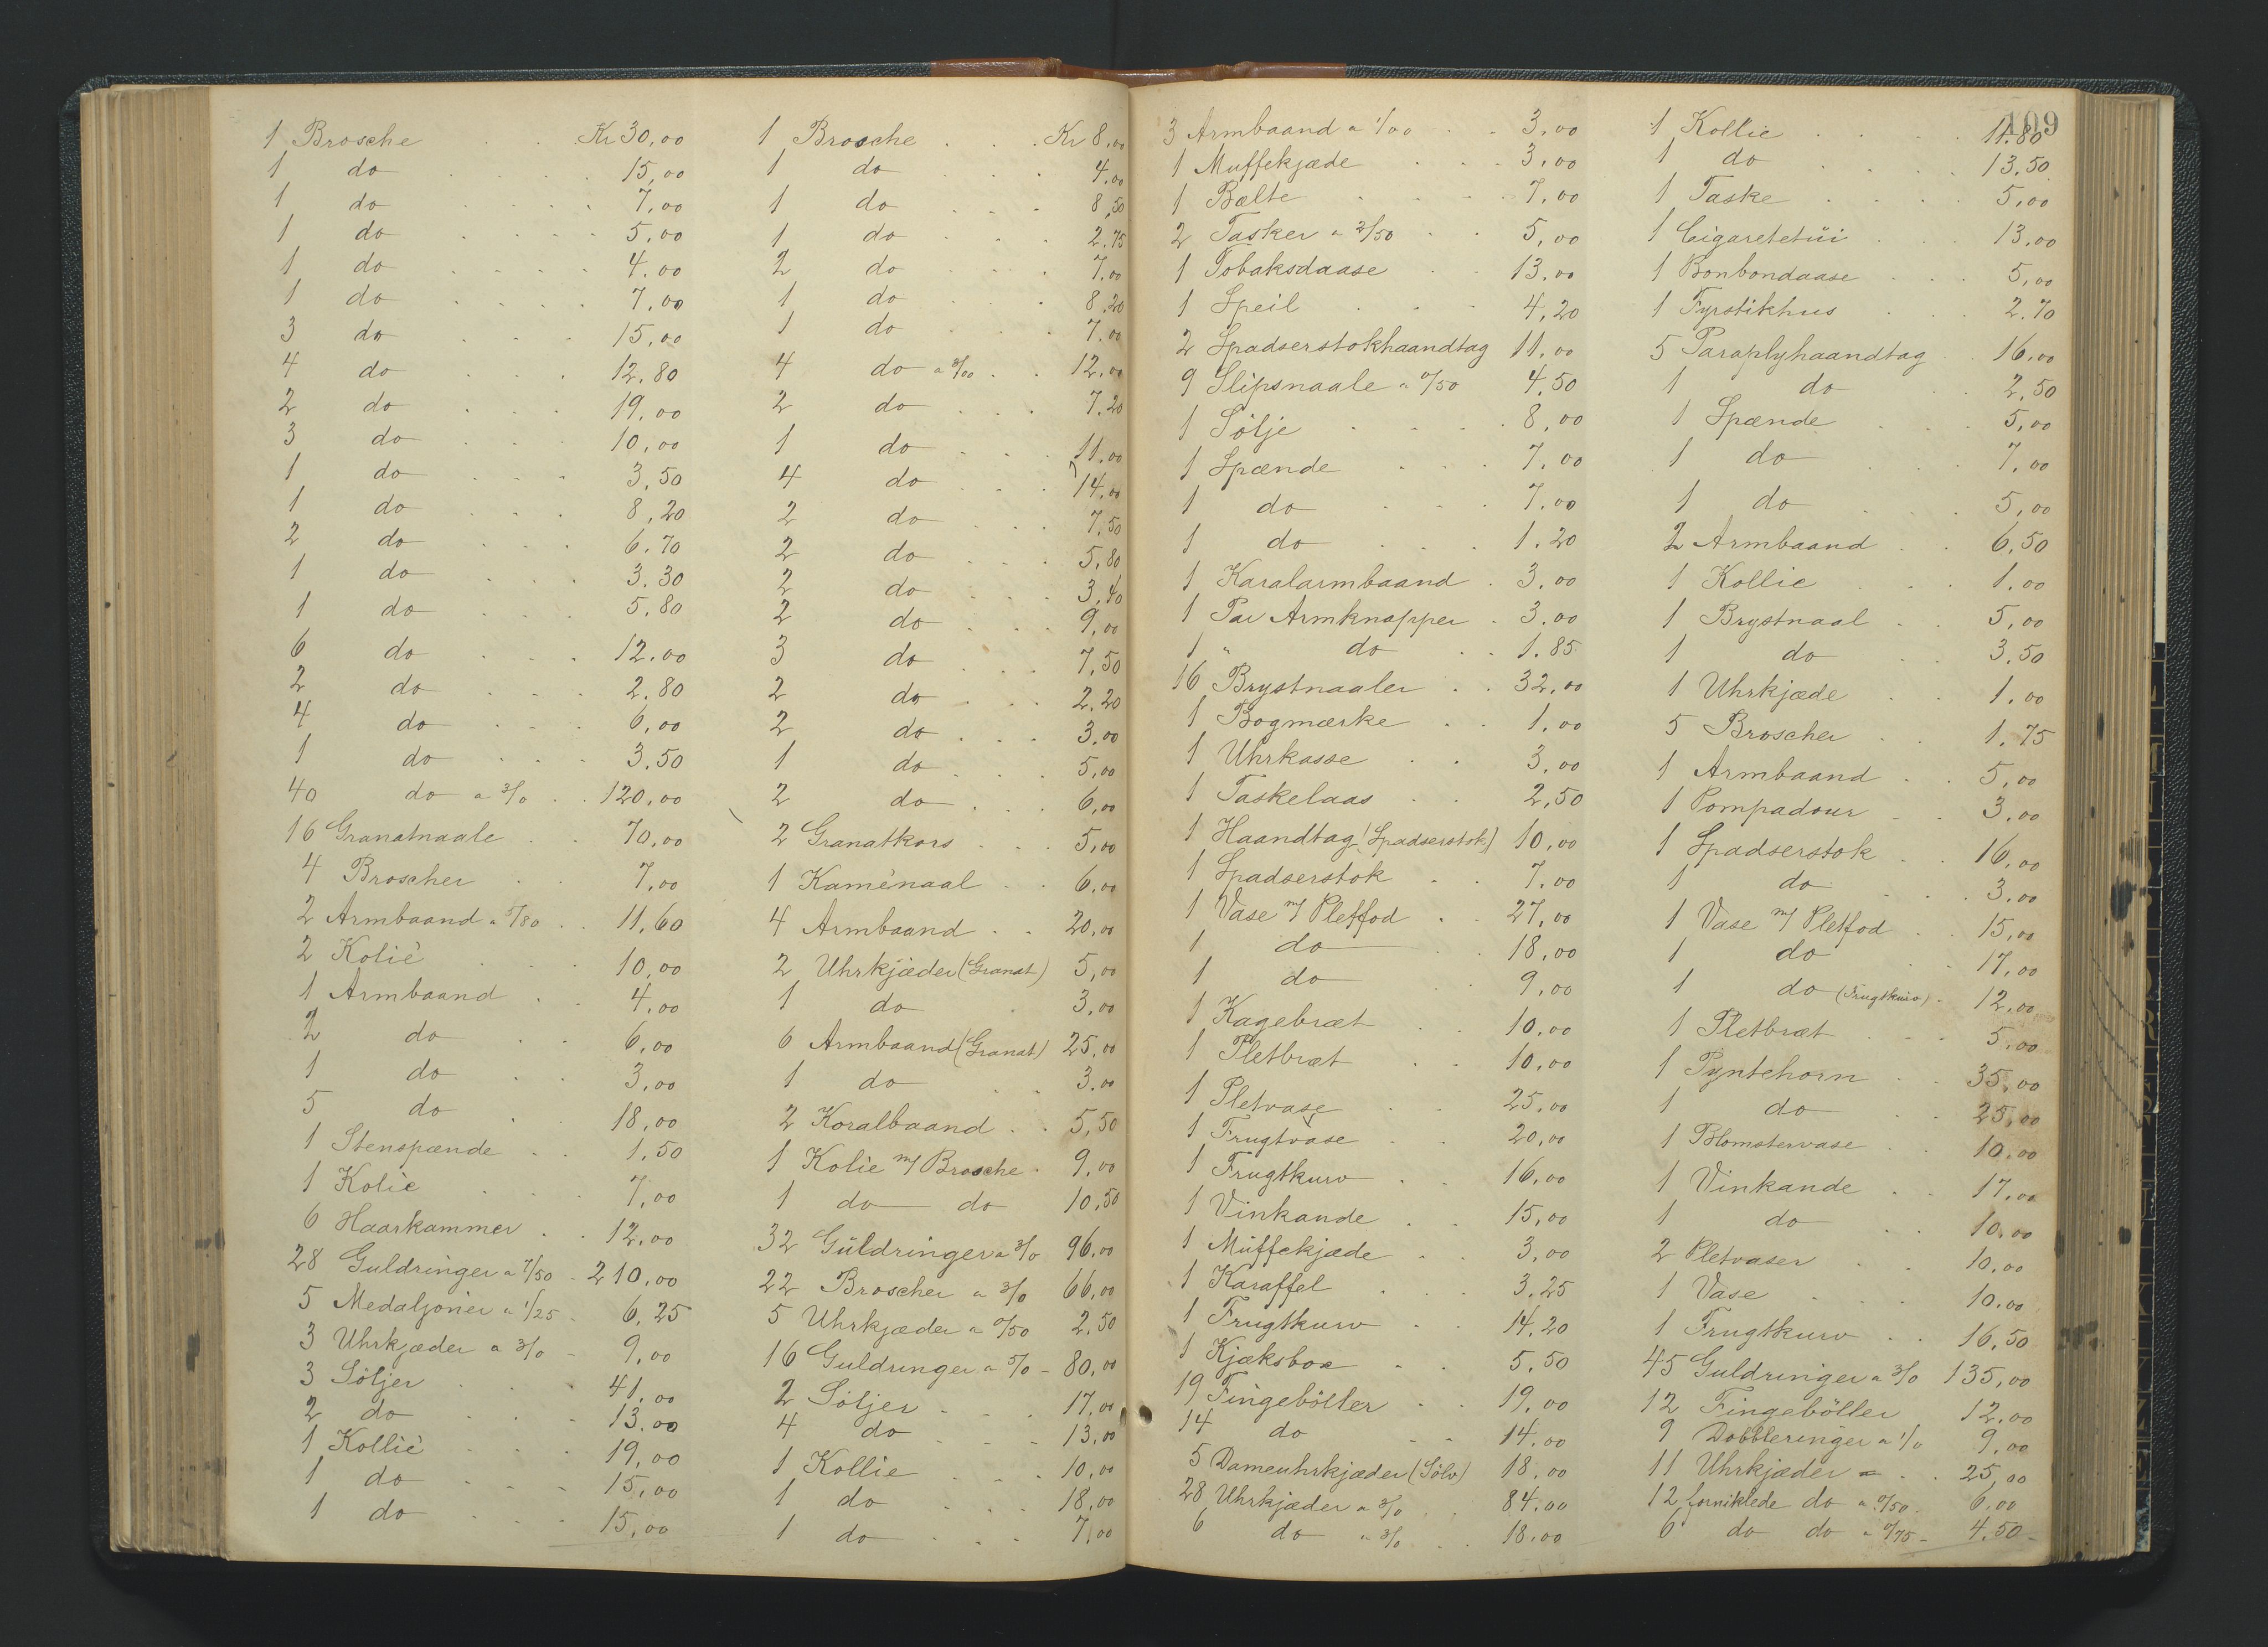 1 Brosche . . Kr 30,00
1 do . . . . 15,00
1 do . . . . 7,00
1 do . . . . 5,00
1 do . . . . 4,00
1 do . . . . 7,00
3 do . . . 15,00
4 do . . . 12,80
2 do . . . 19,00
3 do . . . 10,00
1 do . . . 3,50
1 do . . . 8,20
2 do . . . 6,70
1 do . . . 3.30
1 do . . . 5.80
6 do . . . 12.00
2 do . . . 2.80
4 do . . . 6,00
1 do . . . 3.50
40 do a 3/0 . . 120,00
16 Granatnaale . . 70,00
4 Broscher . . 7,00
2 Armbaand a 5/80 . . 11,60
2 Kolié . . . 10,00
1 Armbaand . . 4,00
2 do . . 6,00
1 do . . 3,00
5 do . 18,00
1 Stenspænde . . 1,50
1 Kolié . . . 7,00
6 Haarkammer . . 12,00
28 Guldringer a 7/50 . 210,00
5 Medaljoner a 1/25 . 6,25
3 Uhrkjæder a 3/0 - 9,00
3 Söljer . . . 41,00
2 do . . . 13,00
1 Kollié . . . 19,00
1 do . . . 15,00
1 do . . . 15,00
1 Brosche . . . Kr 8,00
1 do . . . 4,00
1 do . . . 8,50
1 do . . . 2,75
2 do . . . 7,00
1 do . . . 8,20
1 do . . . 7,00
4 do a 3/00 . . 12,00
2 do . . . 7,20
1 do . . . 11,00
4 do . . . 14,00
2 do . . . 7,50
2 do . . . 5,80
2 do . . . 3,40
2 do . . . 9,00
3 do . . . 7,50
2 do . . . 2,20
2 do . . . 3,00
1 do . . . 5,00
2 do . . . 6,00
2 Granatkors . . . 5,00
1 Kaménaal . . 6,00
4 Armbaand . . 20,00
2 Uhrkjæder (Granat) 5,00
1 do . 3,00
6 Armbaand (Granat) 25,00
1 do . . 3.00
2 Koralbaand . . 5,50
1 Kolie m/ Brosche . 9,00
1 do do 10,50
32 Guldringer a 3/0 96,00
22 Broscher a 3/0 66,00
5 Uhrkjæder a 0/50 2,50
16 Guldringer a 5/0 - 80,00
2 Söljer . . . 17,00
4 do . . . 13,00
1 Kollie . . . 10,00
1 do . . . 18,00
1 do . . . 7,00
3 Armbaand a 1/00 . . 3,00
1 Muffekjæde . . . 3,00
1 Bælte . . . . 7,00
2 Tasker a 2/50 . . 5,00
1 Tobaksdaase . . 13,00
1 Speil . . . 4,20
2 Spadserstokhaandtag 11,00
9 Slipsnaale a 0/50 4,50
1 Sölje . . . . 8,00
1 Spænde . . . 7,00
1 do . . . 7,00
1 do . . . 1.20
1 Karalarmbaand . 3,00
1 Par Armknapper . 3.00
1 " do . . 1.85
16 Brystnaaler . . 32,00
1 Bogmærke . . 1,00
1 Uhrkasse . . 3,00
1 Taskelaas . . 2,50
1 Haandtag (Spadserstok) 10,00
1 Spadserstok . . 7.00
1 Vase m/ Pletfod . 27,00
1 do . 18,00
1 do . 9,00
1 Kagebræt . . 10.00
1 Pletbræt . . 10,00
1 Pletvase . . 25,00
1 Frugtvase . . 20,00
1 Frugtkurv . . 16,00
1 Vinkande . . 15,00
1 Muffekjæde . . 3,00
1 Karaffel . . . 3,25
1 Frugtkurv . . 14,20
1 Kjæksbox . . 5,50
19 Fingebøller . . 19,00
14 do . . 14.00
5 Dameuhrkjæder (Sölv) 18,00
28 Uhrkjæder a 3/0 . . 84.00
6 do a 3/0 . . 18.00
109
1 Kollie . . . . 11.80
1 do . . . 13,50
1 Taske . . . . 5,00
1 Cigaretetui . . . 13,00
1 Bonbondaase . . . 5,00
1 Fyrstikhus . . . 2.70
5 Paraplyhaandtag . 16,00
1 do . . 2,50
1 Spænde . . . 5,00
1 do . . . 7,00
1 do . . . 5,00
2 Armbaand . . 6,50
1 Kollie . . . 1,00
1 Brystnaal . . 5,00
1 do . . 3.50
1 Uhrkjæde . . 1,00
5 Broscher . . 1.75
1 Armbaand . . 5,00
1 Pompadour . . 3,00
1 Spadserstok . . 16,00
1 do . . 3.00
1 Vase m/ Pletfod . 15,00
1 do . . 17,00
1 do (Frugtkurv) . 12,00
1 Pletbræt . . . 5,00
1 Pyntehorn . . 35,00
1 do . . 25,00
1 Blomstervase . . 10,00
1 Vinkande . . 17,00
1 do . . 10,00
2 Pletvaser . . 10,00
1 Vase . . . 10,00
1 Frugtkurv . . 16,50
45 Guldringer a 3/0 135,00
12 Fingebøller 12,00
9 Dobbleringer a 1/0 9,00
11 Uhrkjæder . . 25,00
12 forniklede do a 0/50 . 6,00
6 do do a 0/75 - 4,50 -